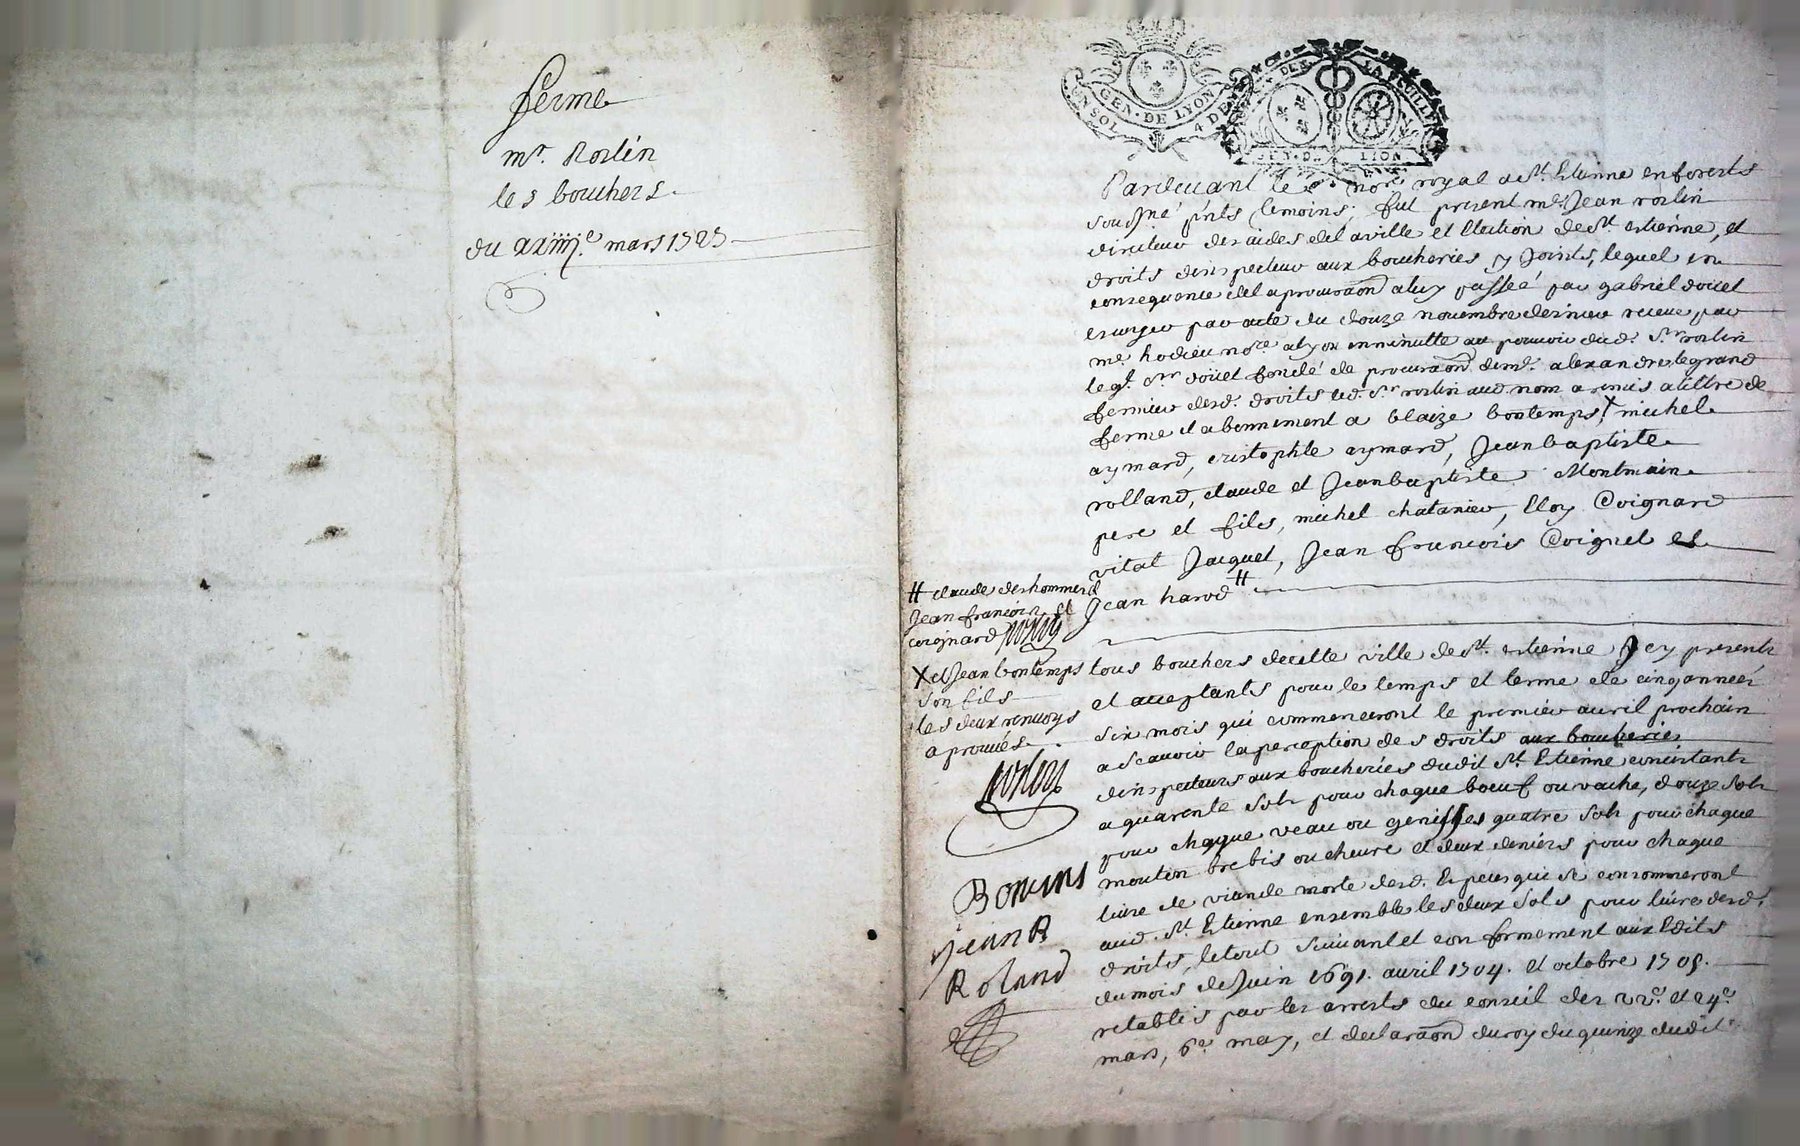 ferme
mr. Roslin
les bouchers.
du xxiiije. mars 1727
GEN. DE LYON
UN SOL 4 DE
DE LA FEUILLE
LION
Pardevant le nore royal a st. Etienne en forests
sousné pnts temoins; fut present mre Jean roslin
directeur des aides de la ville et Election de st estienne, et
droits d'inspecteur aux boucheries y Joints, lequel en
consequence de la procuraõn a luy passéé par gabriel doüet
ecuyer par acte du douze novembre dernier receue par
me hodieu nore a lyon en minutte au pouvoir dud. sr roslin
leql. sr doüet fondé de procuraõn de me. alexandre legrand
fermier desd. droits led. sr roslin aud nom a remis a tiltre de
ferme et abonnement a blaize bontemps, X michel
aymard, cristophle aymard, Jean baptiste
rolland, claude et Jean baptiste Montmain
pere et fils, michel chatanier, Eloy Coignard
vital Jacquet, Jean francois Coignet et
Jean harod #
# claude deshommes
Jean francois et
coignard roslin
X et Jean bontemps
son fils
les deux renvoys
aprouvés.
roslin
tous bouchers de cette ville de st. estienne Icy presents
et acceptants pour le temps et terme de cinq années
six mois qui commenceront le premier avril prochain
a scavoir la perception des droits aux boucheries
d'inspecteurs aux boucheries dudit st. Etienne concistants
a quarente sols pour chaque boeuf ou vache, douze sols
pour chaque veau ou genisses quatre sols pour chaque
mouton brebis ou chevre et deux deniers pour chaque
livre de viande morte desd. Especes qui se consommeront
aud. st. Etienne ensemble les deux sols pour livre desd.
droits, le tout suivant et conformement aux Edits
du mois de Juin 1691. avril 1704. et octobre 1705.
retablis par les arrests du conseil des 22e. et 24e.
mars, 6e may, et declaraõn du roy du quinze dudit
Bontems
jean B
Roland